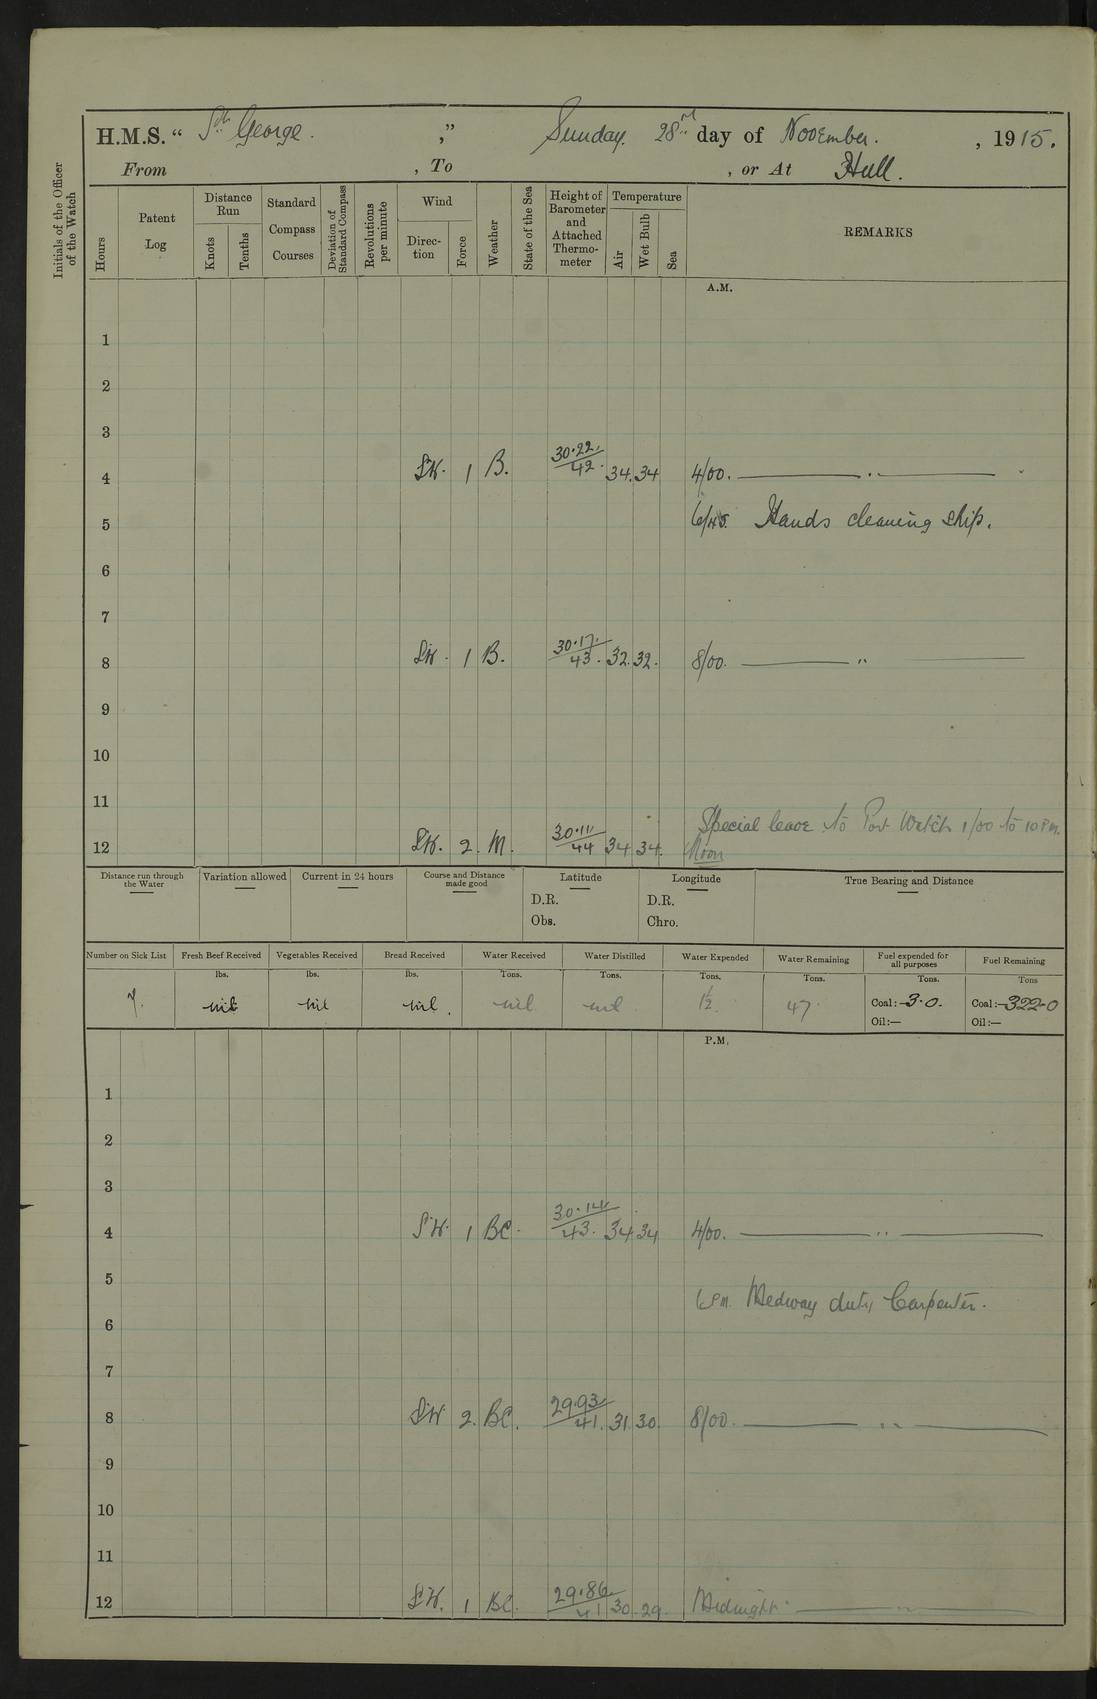 H.M.S. “ St. George. ,” Sunday. 28 day of November. , 1915.
From , To , or At Hull.
Initials of the Officer of the Watch
Hours
Patent Log
Distance Run
Knots
Tenths
Standard Compass Courses
Deviation of Standard Compass
Revolutions per minute
Wind
Direction
Force
Weather
State of the Sea
Height of Barometer and Attached Thermometer
Temperature
Air
Wet Bulb
Sea
REMARKS
A.M.
1
2
3
4 SW. 1 B. 30.22/42. 34. 34 4/00. ——— " ———
5 6/45. Hands cleaning ship.
6
7
8 SW. 1 B. 30.17./43. 32. 32. 8/00. ——— " ———
9
10
11
Special leave to Port Watch 1/00 to 10 P.M.
12 SW. 2. M. 30.11/44 34 34. Noon
Distance run through the Water
Variation allowed
Current in 24 hours
Course and Distance made good
Latitude
D.R.
Obs.
Longitude
D.R.
Chro.
True Bearing and Distance
Number on Sick List
7.
Fresh Beef Received
lbs.
nil
Vegetables Received
lbs.
nil
Bread Received
lbs.
nil.
Water Received
Tons.
nil
Water Distilled
Tons.
nil
Water Expended
Tons.
1½
Water Remaining
Tons.
47.
Fuel expended for all purposes
Tons.
Coal:— 3.0.
Oil:—
Fuel Remaining
Tons
Coal:— 322.0
Oil:—
P.M.
1
2
3
4 SW. 1 BC. 30.14/43. 34 34 4/00. ——— " ———
5
6 P.M. Medway duty Carpenter.
6
7
8 SW 2. BC. 29.93/41. 31. 30. 8/00. ——— " ———
9
10
11
12 SW. 1 BC. 29.86/41 30 29. Midnight. ——— " ———